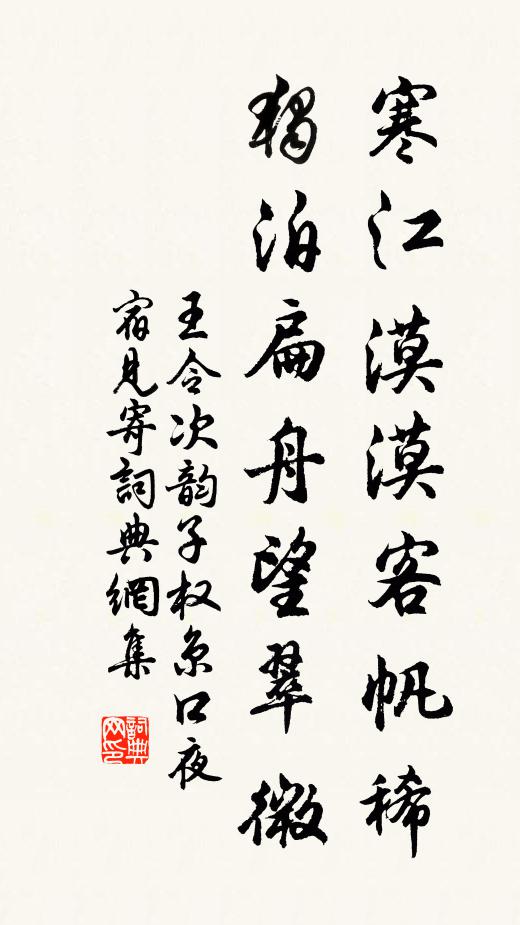 寒江漠漠客帆稀
独泊扁舟望翠微
王令次韵子权京口夜
宿见寄詞典網集
詞典
网印